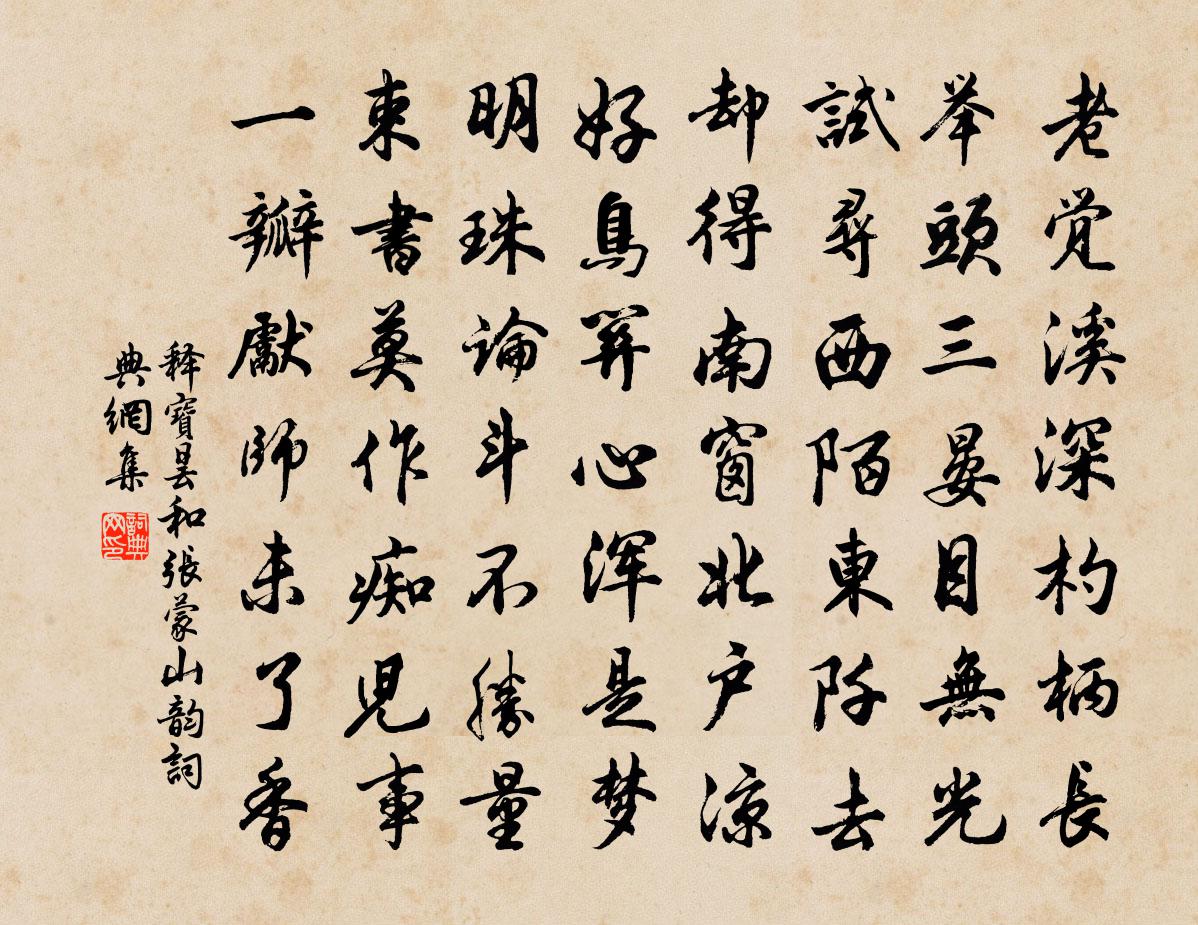 老觉溪深杓柄長
举頭三晏目無光
試尋西陌東阡去
却得南窗北户凉
好鳥心浑是梦
明珠論斗不勝量
束書莫作痴児事
一瓣獻師未了香
释寶昙和張蒙山韵詞
典網集
詞典
网印